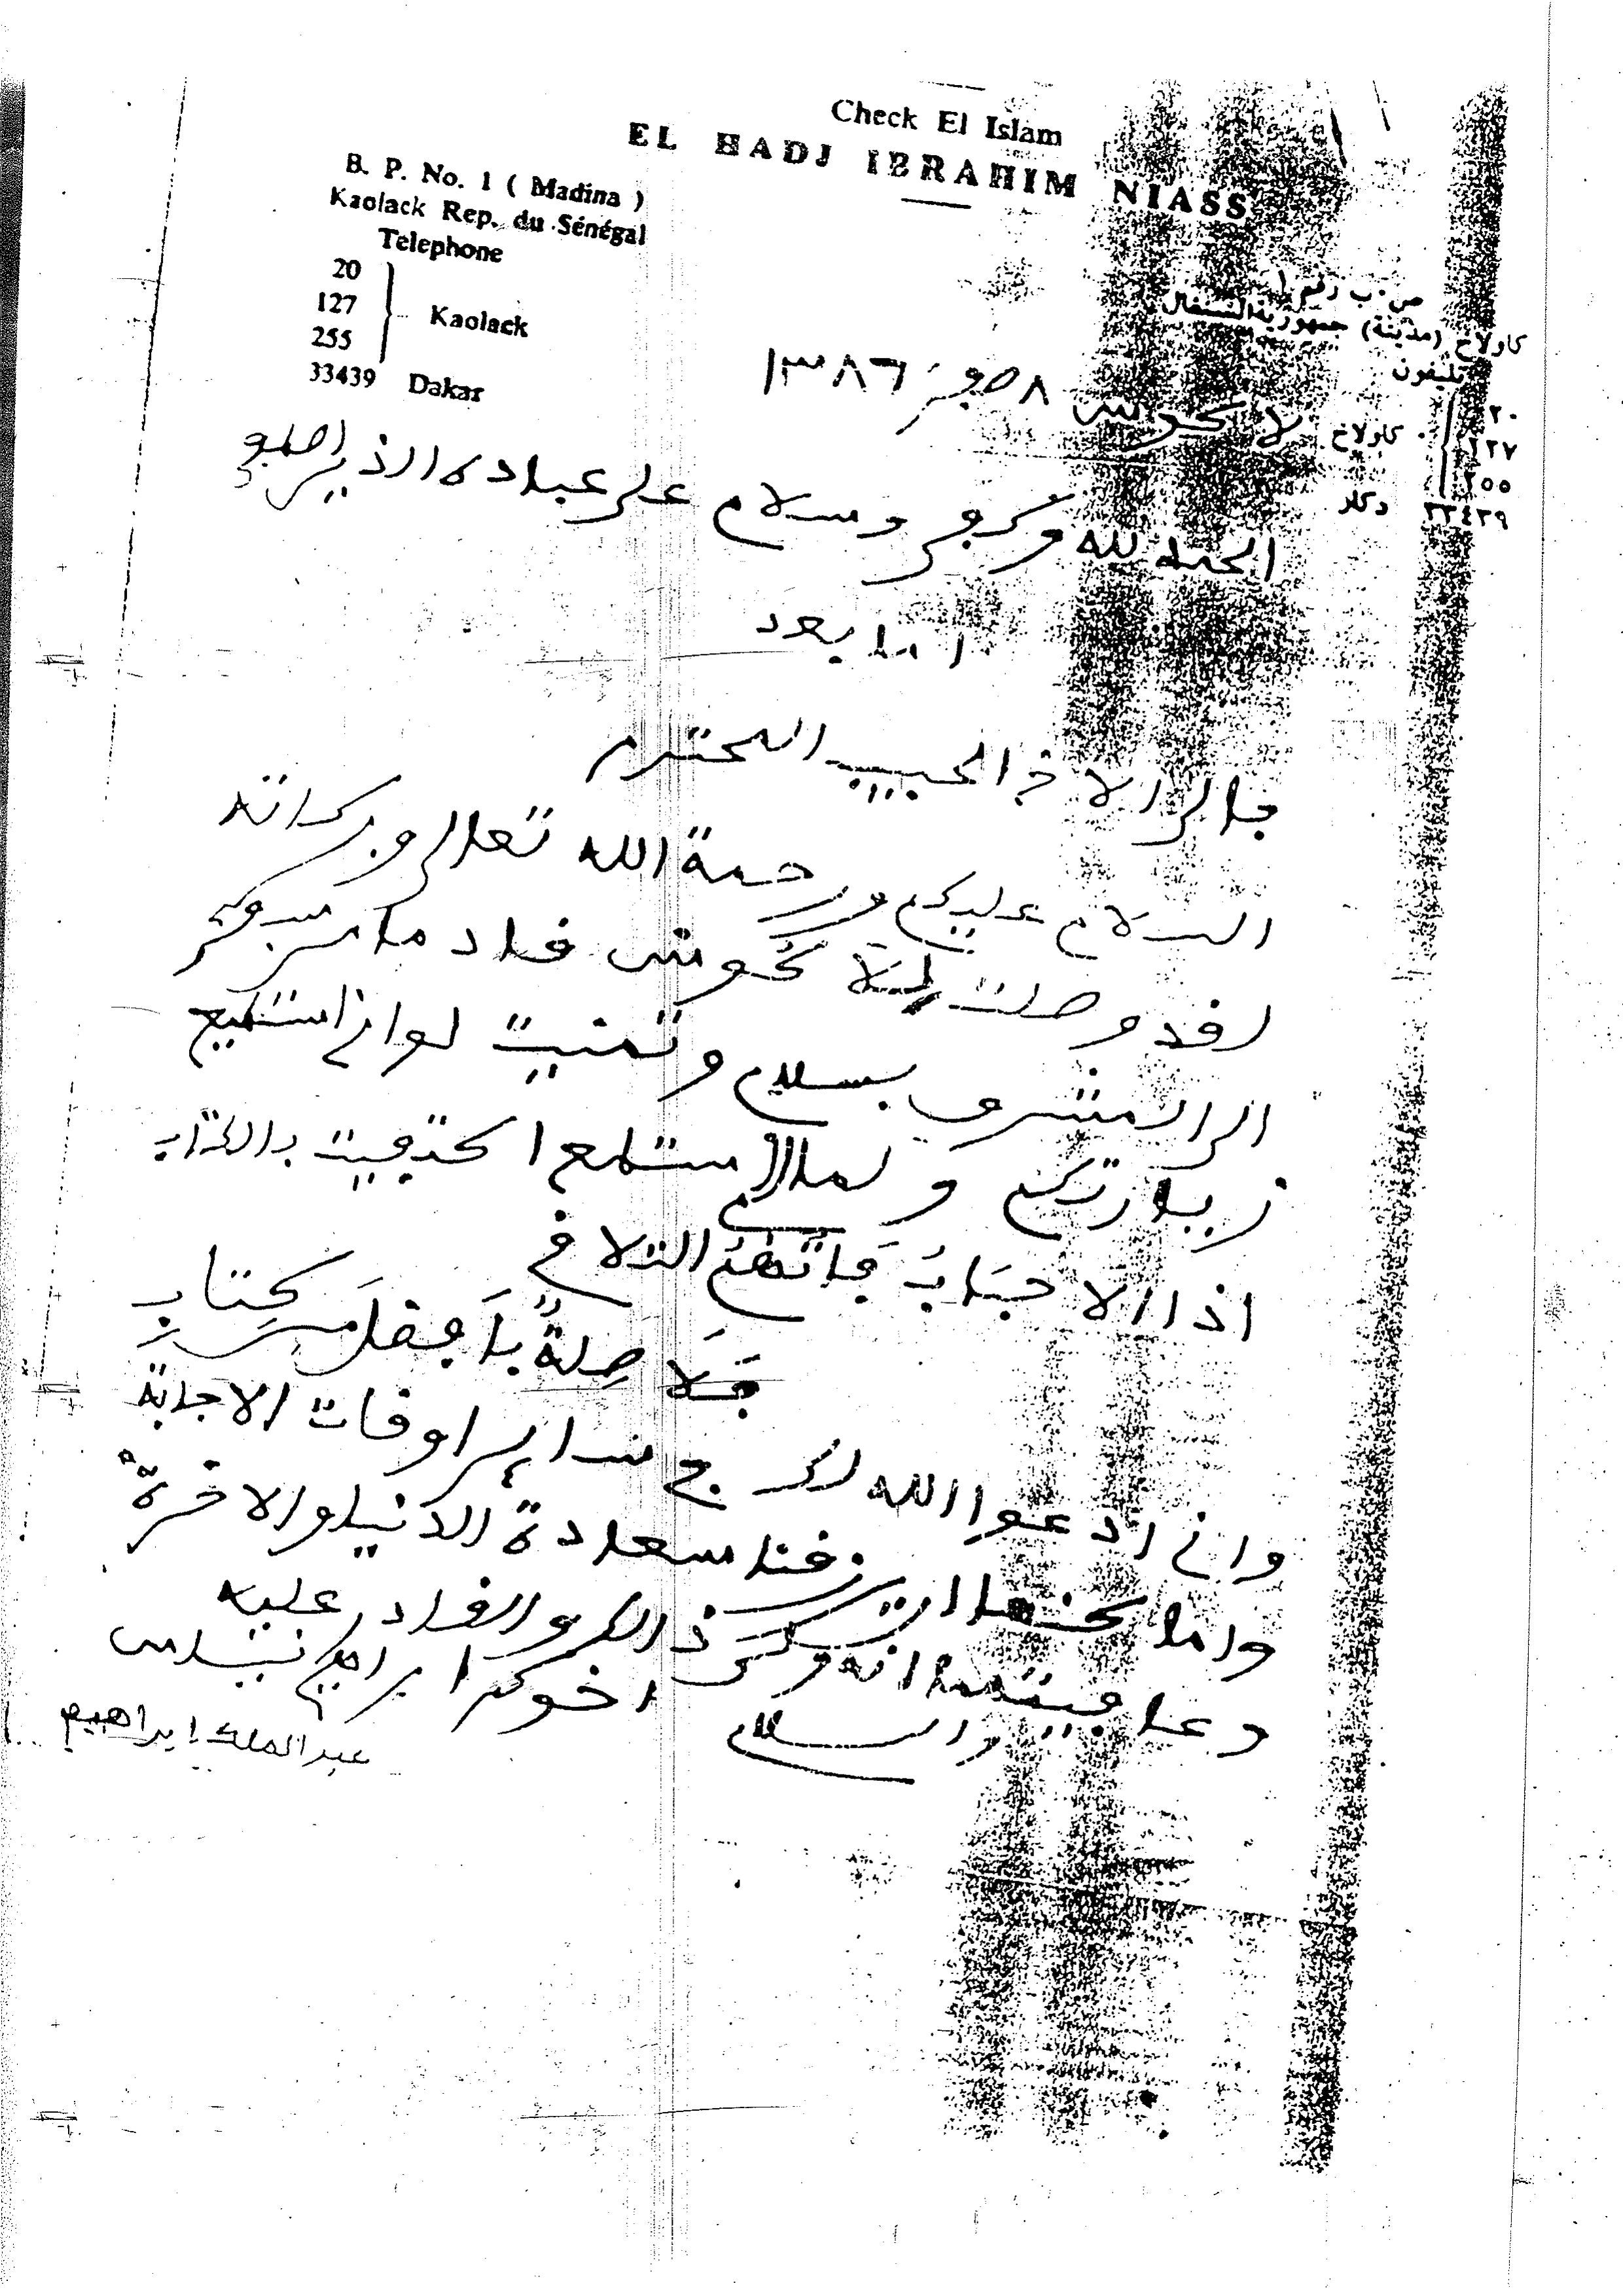 Check El Islam
EL HADJ IBRAHIM NIASS
B. P. No. 1 ( Madina )
Kaolack Rep. du Sénégal
Telephone
20
127
255
Kaolack
33439 Dakar
ص . ب رقم ١
كاولاخ (مدينة) جمهورية السنغال
تليفون
٢٠
١٢٧
٢٥٥
كاولاخ
٣٣٤٣٩ دكار
لاكوس ٨ صفر ١٣٨٦
الحمد لله وكفى وسلام على عباده الذين اصطفى
اما بعد
فالى الاخ الحبيب المحترم
السلام عليكم ورحمة الله تعالى وبركاته
لقد وصلت لاكوس قادما من سفر
الى المشرق بسلام وتمنيت لو اني استطيع
زيارتكم ولما لم استطع اكتفيت بالكتاب
اذا الاحباب فاتهم التلاقي
فلا صلة بافضل من كتاب
واني ادعوا الله لكم في سائر اوقات الاجابة
سعادة الدنيا والاخرة
ذلك والقادر عليه
والسلام اخوكم ابراهيم نياس
عبد الملك ابراهيم